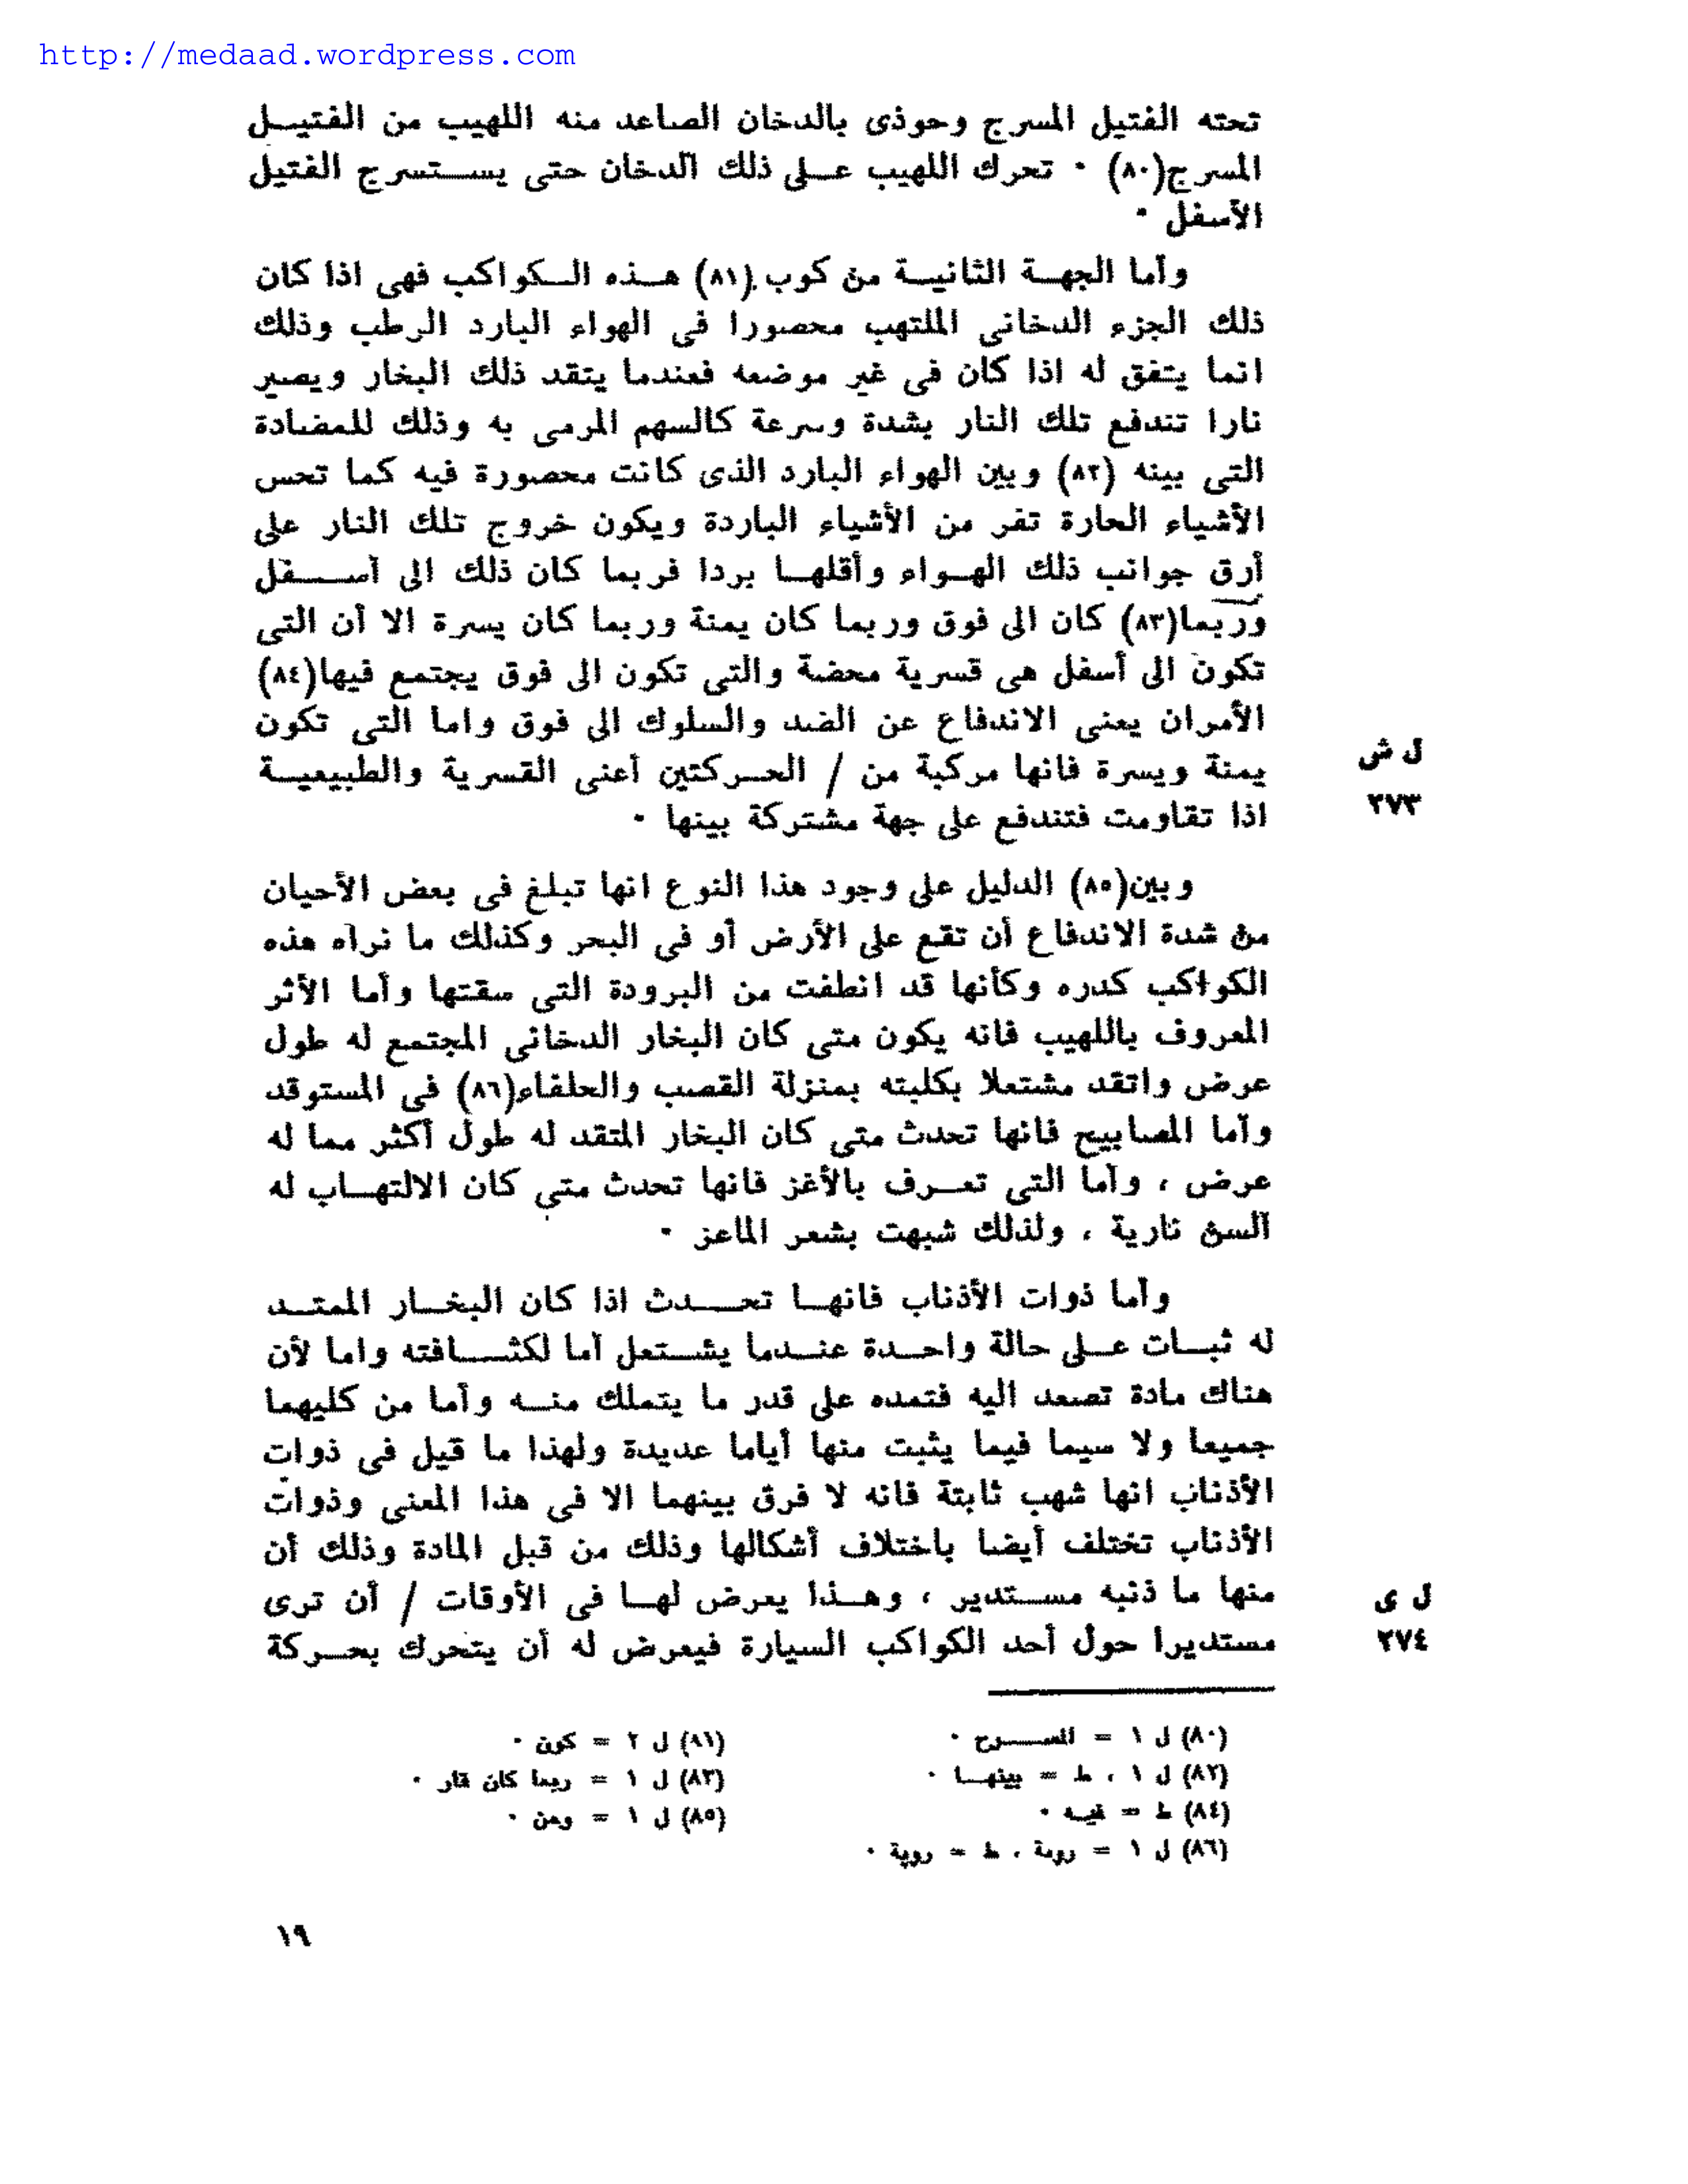 http://medaad.wordpress.com
تحته الفتيل المسرج وحوذى بالدخان الصاعد منه اللهيب من الفتيل
المسرج(٨٠) · تحرك اللهيب على ذلك الدخان حتى يستسرج الفتيل
الأسفل ·
وأما الجهة الثانية من كوب (٨١) هذه الكواكب فهى اذا كان
ذلك الجزء الدخانى الملتهب محصورا فى الهواء البارد الرطب وذلك
انما يتفق له اذا كان فى غير موضعه فعندما يتقد ذلك البخار ويصير
نارا تندفع تلك النار بشدة وسرعة كالسهم المرمى به وذلك للمضادة
التى بينه (٨٢) وبين الهواء البارد الذى كانت محصورة فيه كما تحس
الأشياء الحارة تفر من الأشياء الباردة ويكون خروج تلك النار على
أرق جوانب ذلك الهواء وأقلها بردا فربما كان ذلك الى أسفل
وربما(٨٣) كان الى فوق وربما كان يمنة وربما كان يسرة الا أن التى
تكون الى أسفل هى قسرية محضة والتى تكون الى فوق يجتمع فيها(٨٤)
الأمران يعنى الاندفاع عن الضد والسلوك الى فوق واما التى تكون
يمنة ويسرة فانها مركبة من / الحركتين أعنى القسرية والطبيعية
ل ش
٢٧٣
اذا تقاومت فتندفع على جهة مشتركة بينها ·
وبين(٨٥) الدليل على وجود هذا النوع انها تبلغ فى بعض الأحيان
من شدة الاندفاع أن تقع على الأرض أو فى البحر وكذلك ما نراه هذه
الكواكب كدره وكأنها قد انطفت من البرودة التى سقتها وأما الأثر
المعروف باللهيب فانه يكون متى كان البخار الدخانى المجتمع له طول
عرض واتقد مشتعلا بكليته بمنزلة القصب والحلفاء(٨٦) فى المستوقد
وأما المصابيح فانها تحدث متى كان البخار المتقد له طول أكثر مما له
عرض ، وأما التى تعرف بالأغز فانها تحدث متى كان الالتهاب له
ألسن نارية ، ولذلك شبهت بشعر الماعز ·
وأما ذوات الأذناب فانها تحدث اذا كان البخار الممتد
له ثبات على حالة واحدة عندما يشتعل أما لكثافته واما لأن
هناك مادة تصعد اليه فتمده على قدر ما يتملك منه وأما من كليهما
جميعا ولا سيما فيما يثبت منها أياما عديدة ولهذا ما قيل فى ذوات
الأذناب انها شهب ثابتة فانه لا فرق بينهما الا فى هذا المعنى وذوات
الأذناب تختلف أيضا باختلاف أشكالها وذلك من قبل المادة وذلك أن
منها ما ذنبه مستدير ، وهذا يعرض لها فى الأوقات / أن ترى
ل ى
٢٧٤
مستديرا حول أحد الكواكب السيارة فيعرض له أن يتحرك بحركة
(٨٠) ل ١ = المسرح ·
(٨١) ل ٢ = كون ·
(٨٢) ل ١ ، ط = بينها ·
(٨٣) ل ١ = ربما كان قار ·
(٨٤) ط = فيه ·
(٨٥) ل ١ = ومن ·
(٨٦) ل ١ = رومة ، ط = روية ·
١٩